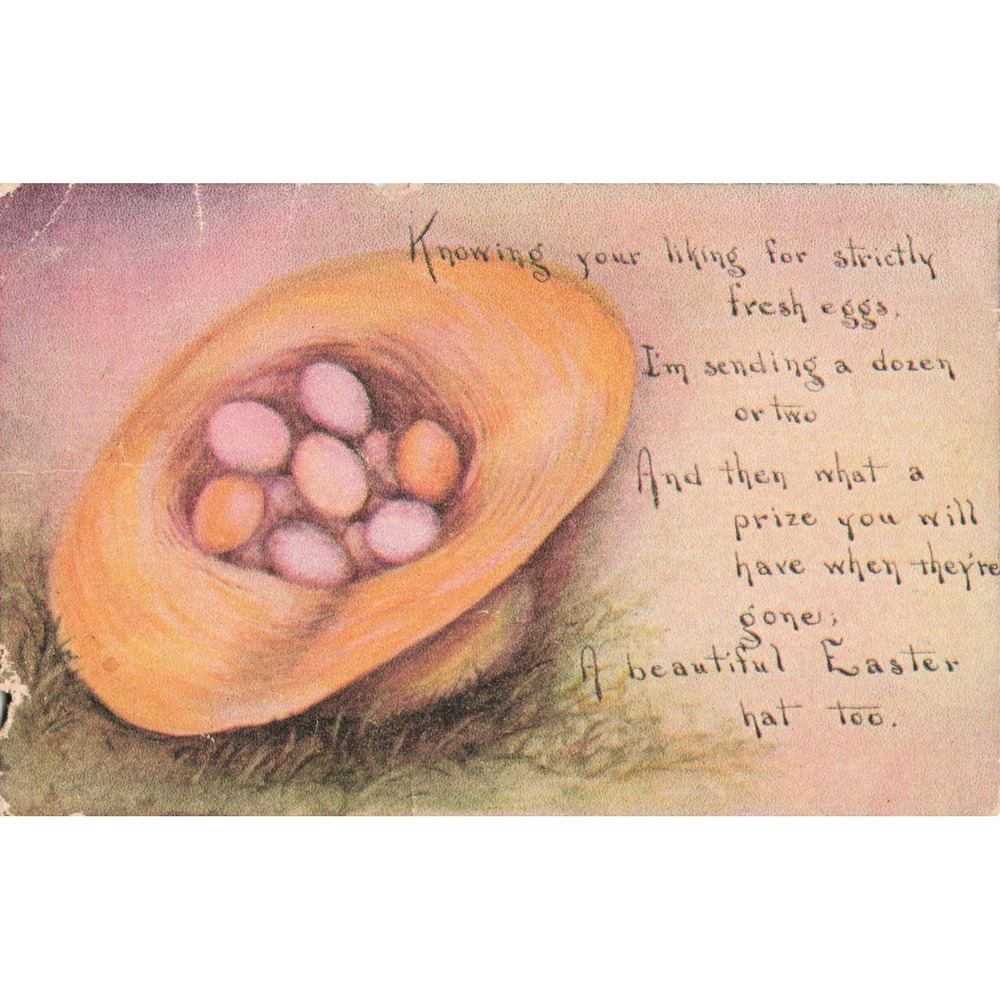 Knowing your liking for strictly
fresh eggs.
I'm sending a dozen
or two
And then what a
prize you will
have when they're
gone;
A beautiful Easter
hat too.